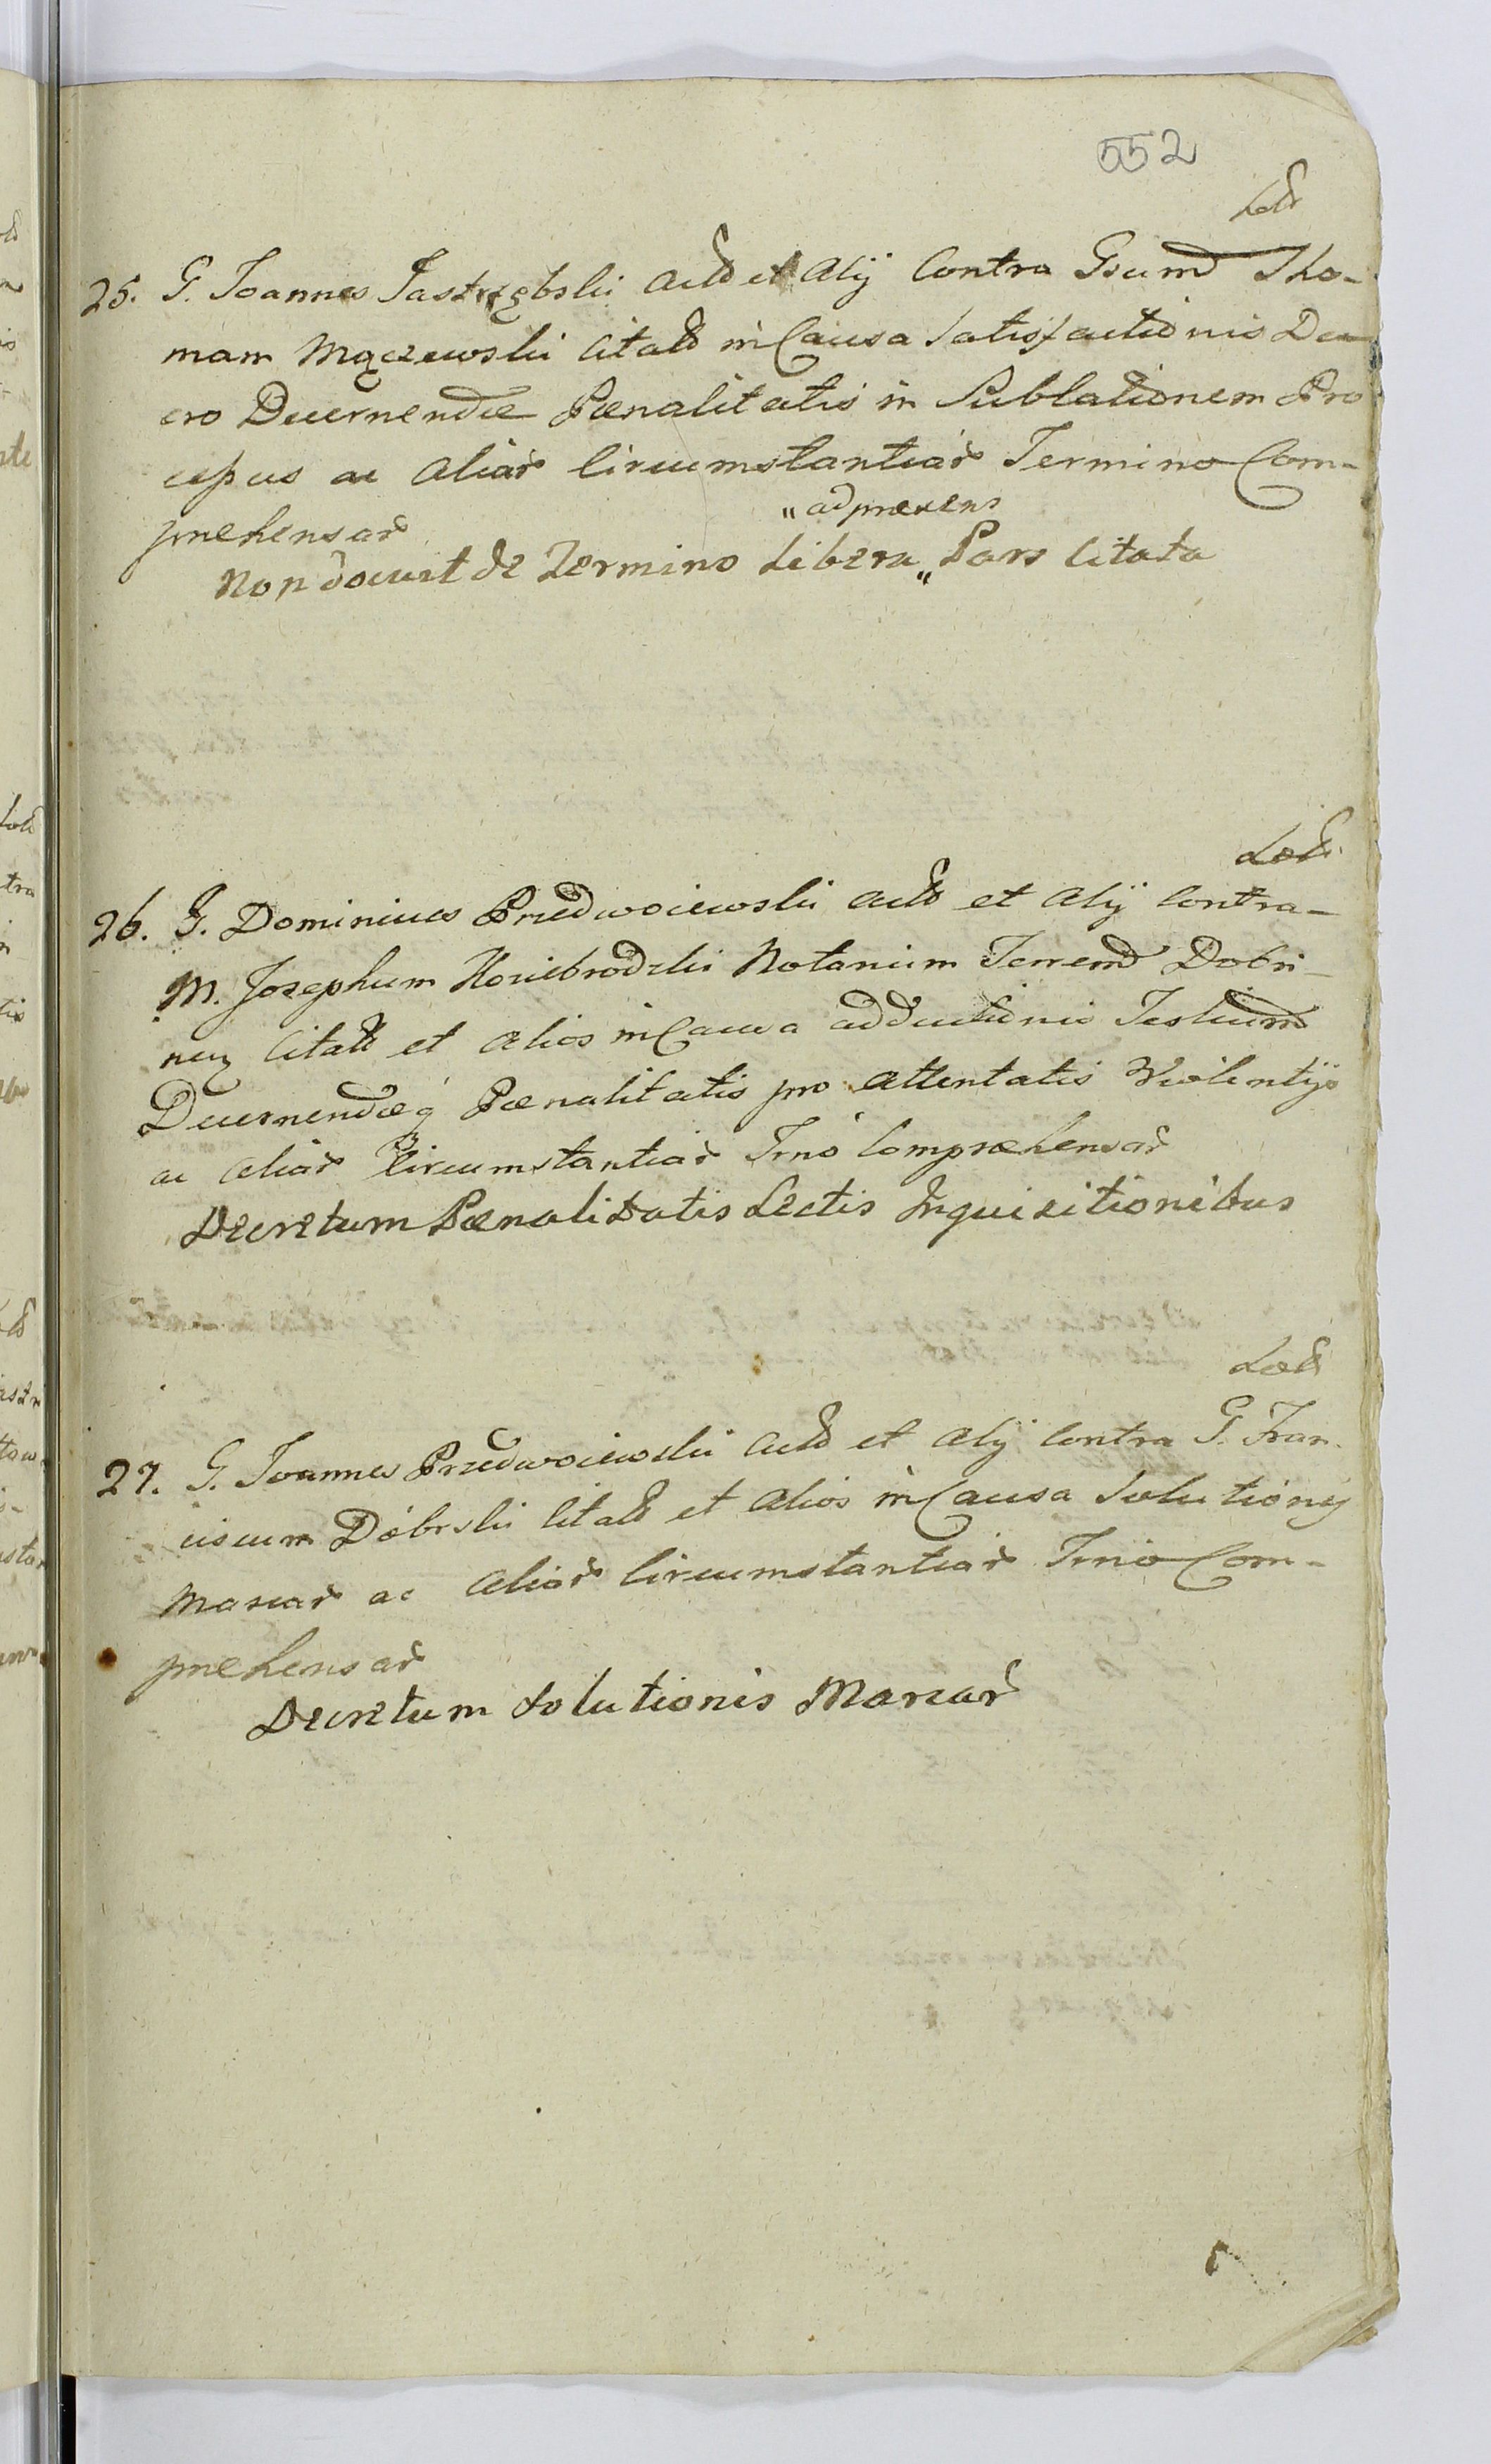 552
25. G. Joannes Jastrzębski Actor et Alij Contra Gsum Tho-
mam Mączewski Citatt in Causa Satisfactionis Decr
ero Decernendæ Pænalitatis in Sublationem Pro
cessus ac Aliar Circumstantiar Termino Com-
prehensar
"ad præsens
Non docuit de Termino Libera " Pars Citata
26. G. Dominicus Przedwoiewski Actor et Alij Contra
M. Josephum Koziebrodzki Notarium Terrem Dobri-
nen Citatt et Alios in Causa adductionis Testium
Decernendæq Pænalitatis pro Attentatis Violentijs
ac Aliar Circumstantiar Trno Compræhensar
Decretum Pænalitatis Lectis Inquisitionibus
27. G. Joannes Przedwoiewski Actor et Alij Contra G. Fran-
ciscum Dobrski Citatt et Alios in Causa Solutionis
Marcar ac Aliar Circumstantiar Trno Com-
prehensar
Decretum Solutionis Marcar